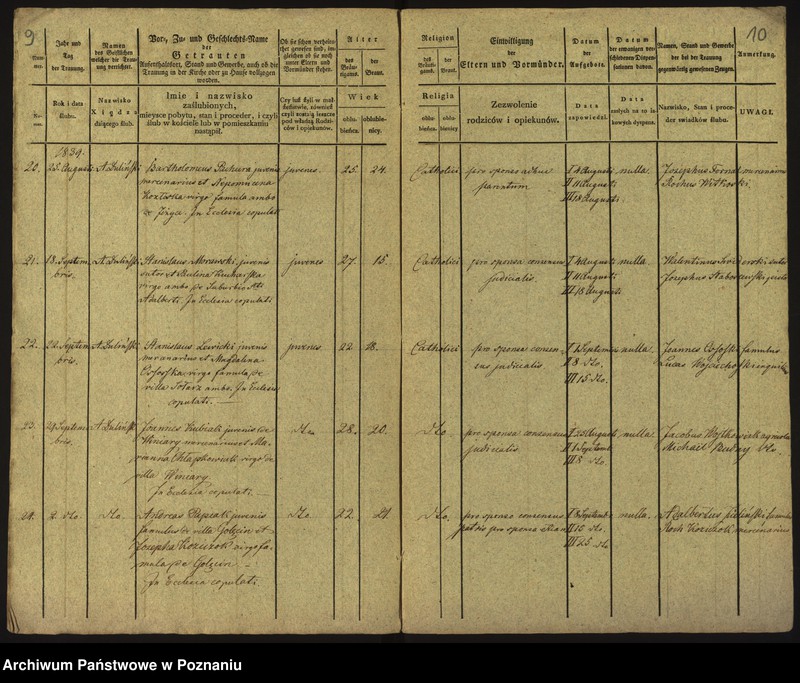 9.
10
Num-
mer.
Jahr und
Tag
der Trauung.
Namen
des Geistlichen
welcher die Trau-
ung verrichtet.
Vor-, Zu- und Geschlechts-Name
der
Getrauten
Aufenthaltsort, Stand und Gewerbe, auch ob die
Trauung in der Kirche oder zu Hause vollzogen
worden.
Ob sie schon verheira-
thet gewesen sind, im-
gleichen ob sie noch
unter Eltern und
Vormünder stehen.
Alter
des
Bräu-
tigams.
der
Braut.
Religion
des
Bräuti-
gams.
der
Braut.
Einwilligung
der
Eltern und Vormünder.
Datum
des
Aufgebots.
Datum
der etwanigen vor-
schriftlichen Dispen-
sationen davon.
Namen, Stand und Gewerbe
der bei der Trauung
gegenwärtig gewesenen Zeugen.
Anmerkung.
Nu-
mer.
Rok i data
ślubu.
Nazwisko
Xiędza
dającego ślub.
Imie i nazwisko
zaślubionych,
mieysce pobytu, stan i proceder, i czyli
ślub w kościele lub w pomieszkaniu
nastąpił.
Czy już byli w mał-
żeństwie, również
czyli zostają ieszcze
pod władzą Rodzi-
ców i opiekunów.
Wiek
oblu-
bieńca.
oblubie-
nicy.
Religia
oblu-
bieńca.
oblu-
bienicy
Zezwolenie
rodziców i opiekunów.
Data
zapowiedzi.
Data
Nazwisko, Stan i proce-
der świadków ślubu.
UWAGI.
1839.
20.
25. Augusti
A. Duliński
Bartholomeus Piechura juvenis
mercenarius et Nepomucena
virgo famula ambo
de Jeżyce. In Ecclesia copulati
juvenis.
25.
24.
Catholici
pro sponso adhuc
parentum
I 4 Augusti
II 11 Augusti
III 18 Augusti.
nulla.
Josephus Fornal mercenarius
Rochus Witkoski.
21.
18. Septem
bris.
A. Duliński
Stanislaus Morawski, juvenis
sutor et Paulina Kucharska
virgo ambo de Suburbio Sti
Adalberti. In Ecclesia copulati
juvenis
27.
15.
Catholici
pro sponsa consensus
judicialis.
I 4 Augusti
II 11 Augusti
III 18 Augusti
nulla.
Valentinus
Josephus
22.
22. Septem
bris.
A. Duliński
Stanislaus Lewicki juvenis
mercenarius et Magdalena
virgo famula, de
villa Sołacz ambo. In Ecclesia
copulati.
juvenis
22.
18.
Catholici
pro sponsa consen
sus judicialis
I 1 Septemris
II 8 dto.
III 15 dto.
nulla.
Joannes famulus
Lucas Wojciechoski inquil
23.
29 Septem
bris.
A. Duliński
Joannes Kubiak juvenis de
Winiary mercenarius et Ma
rianna Chłapkowiak virgo de
villa Winiary.
In Ecclesia copulati.
dto
28.
20.
dto
pro sponsa consensus
judicialis.
I 25 Augusti
II 1 Septemb
III 8 dto.
nulla.
Jacobus agricola
Michael dto.
24.
2. dto.
dto.
Andreas juvenis
famulus de villa Golęcin et
Josepha Kozurzok virgo fa-
mula de Golęcin
In Ecclesia copulati.
dto
22.
21.
dto.
pro sponso consensus
patris pro sponsa etiam
I 8 Septembr
II 15 dto.
III 25 dto
nulla.
Adalbertus famulus
Roch Kozurzok mercenarius
Archiwum Państwowe w Poznaniu